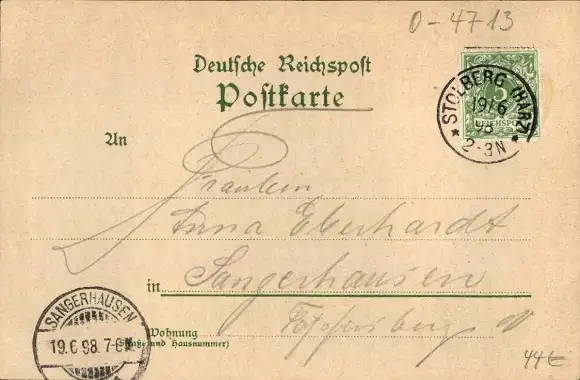 0-4713
Deutsche Reichspost
Postkarte
STOLBERG (HARZ)
19/6
98
2-3N
5
REICHSPOST
An
Fräulein
Anna Eberhardt
in Sangerhausen
SANGERHAUSEN
19.6.98.7-8N
Wohnung
(Straße und Hausnummer)
44€